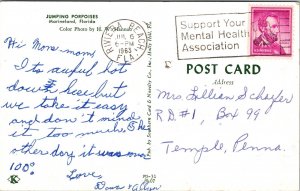 JUMPING PORPOISES
Marineland, Florida
Color Photo by H.
Hi Mom mom,
Its awful hot
down here but
we take it easy
and don't mind
it too much. The
other day it was one
100°
Love,
Dave &
RIVIERA BEACH
JUL 6
6-PM
1963
FLA.
Support Your
Mental Health
Association
POST CARD
Address
Mrs Lillian Schafer
R.D.#1, Box 99
Temple, Penna.
K